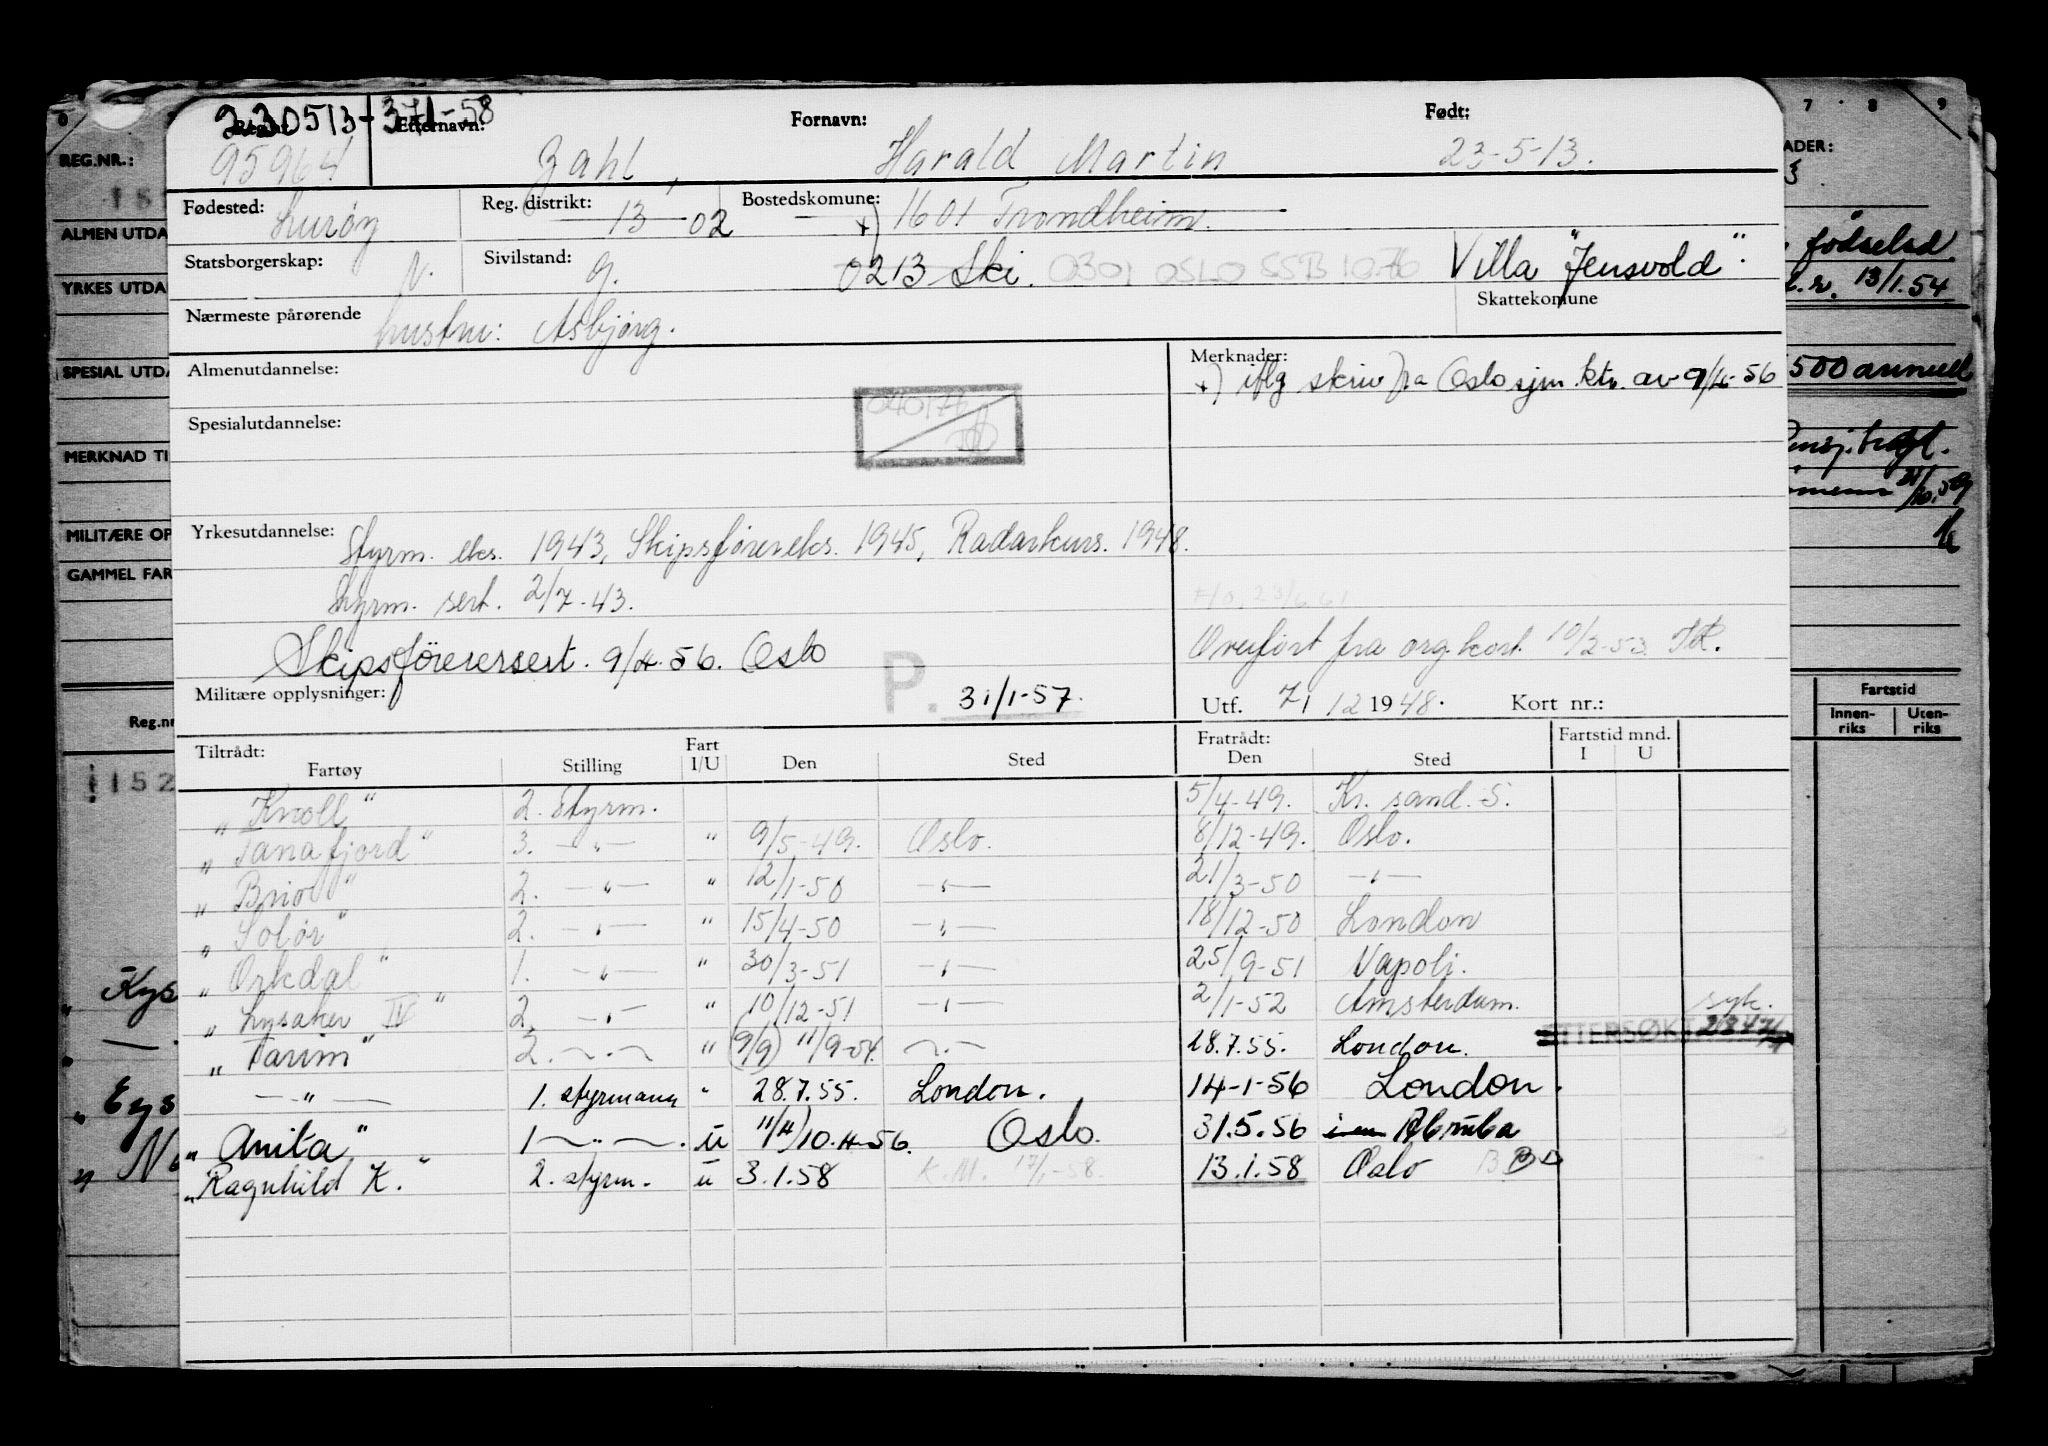 230513-371-58
Reg.nr. Efternavn: Fornavn: Født:
95964 Zahl, Harald Martin 23-5-13.
Fødested: Lurøy Reg. distrikt: 13 02 Bostedskomune: +) 1601 Trondheim.
Statsborgerskap: N. Sivilstand: g. 0213 Ski. 0301 OSLO SSB 10.76 Villa "Jensvold".
Skattekomune
Nærmeste pårørende hustru: Asbjørg.
Almenutdannelse: Merknader:
+) iflg skriv fra Oslo sjm.ktr. av 9/4-56
040176
Spesialutdannelse:
Yrkesutdannelse: Styrm. eks. 1943, Skipsførereks. 1945, Radarkurs. 1948.
Styrm. sert. 2/7-43.
Skipsførersert. 9/4.56. Oslo
Overført fra org.kort. 10/2-53.
Militære opplysninger: P. 31/1-57. Utf. 7/12 1948. Kort nr.:
Tiltrådt: Fratrådt: Fartstid mnd.
Fartøy Stilling Fart I/U Den Sted Den Sted I U
"Knoll" 2. Styrm. 5/4-49. Kr. sand. S.
"Tanafjord" 3. —"— " 9/5-49. Oslo. 8/12-49. Oslo.
"Brio" 2. —"— " 12/1-50 —"— 21/3-50 —"—
"Solør" 2. —"— " 15/4-50 —"— 18/12-50 London
"Orkdal" 1. —"— " 30/3-51 —"— 25/9-51 Napoli.
"Lysaker IV" 2. —"— " 10/12-51 —"— 2/1-52 Amsterdam. syk.
"Tarim" 2. —"— " (9/9) 11/9-54. —"— 28.7.55. London. ETTERSØKT
—"— 1. styrmann " 28.7.55. London. 14-1-56 London.
"Anita" 1 —"—. u 11/4) 10.4-56. Oslo. 31.5.56 Abruba
"Ragnhild K." 2. styrm. u 3.1.58 K.M. 17/1-58. 13.1.58 Oslo
REG.NR.:
ALMEN UTDA
YRKES UTDA
SPESIAL UTDA
MERKNAD TI
MILITÆRE OP
GAMMEL FAR
Reg.nr
1152
" Kys
" Eys
" N
7 8 9
ADER:
fødselsd
13/1.54
500 annull
31/10.59
Fartstid
Innenriks Utenriks